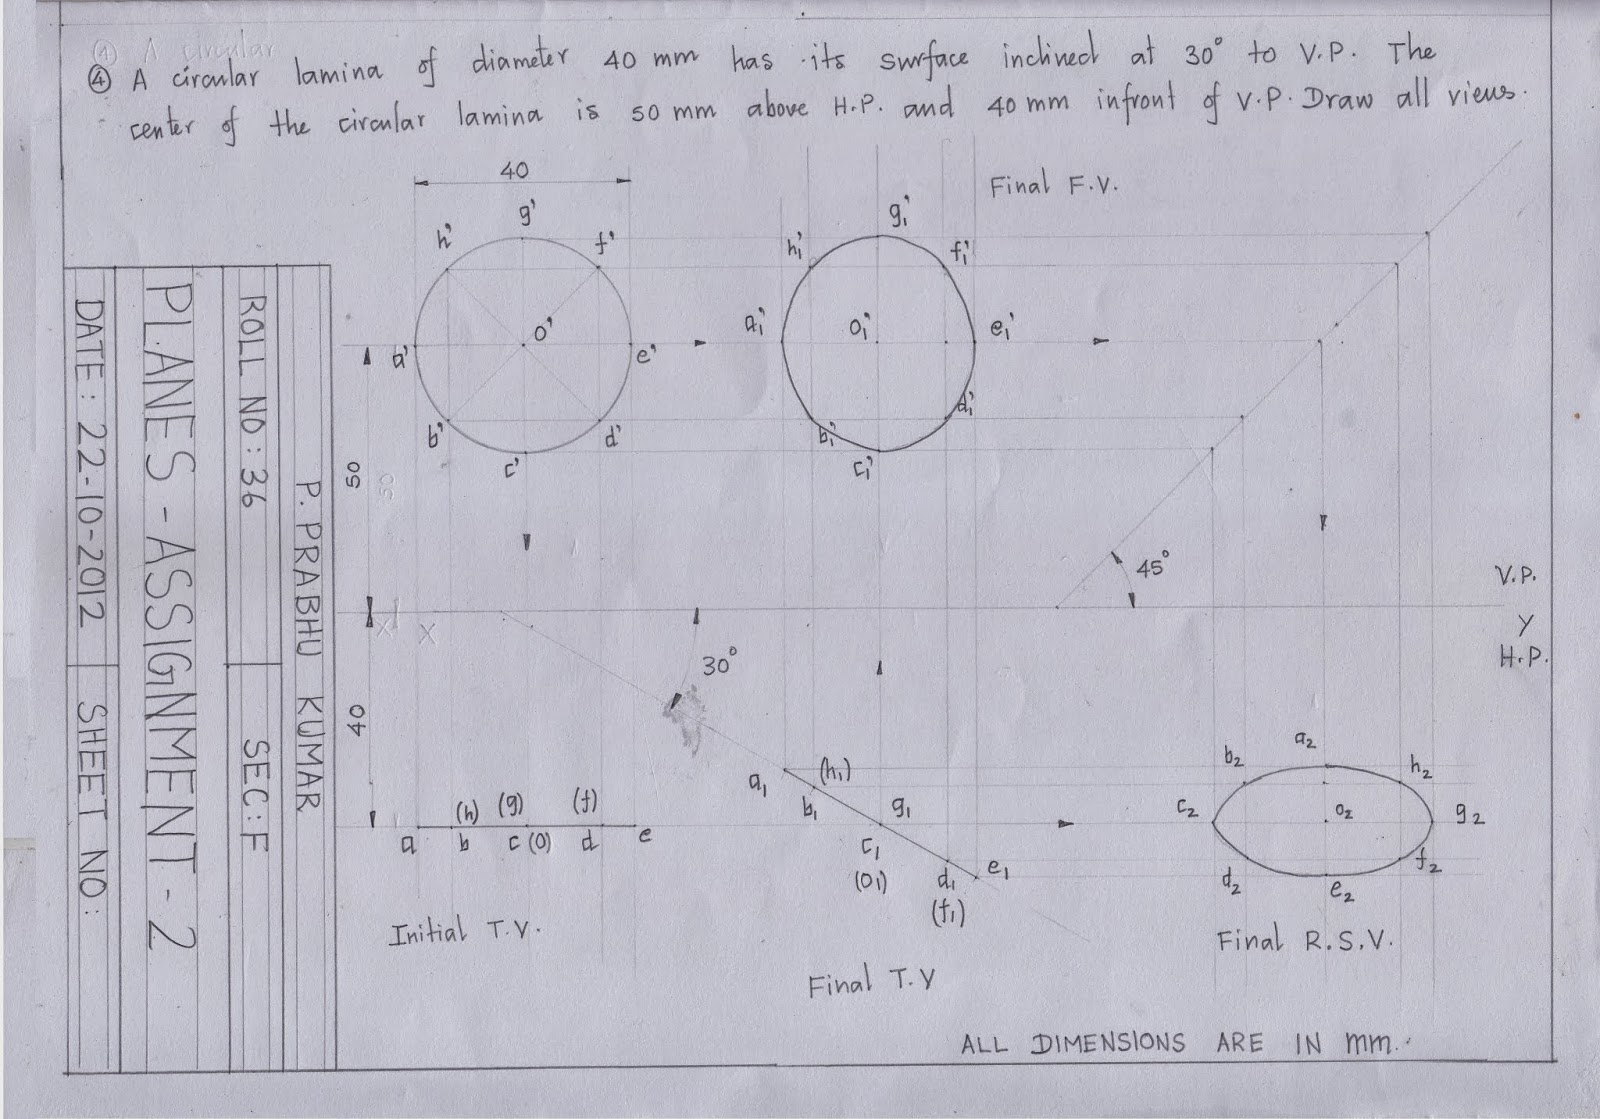 ④ A circular
④ A circular lamina of diameter 40 mm has its surface inclined at 30° to V.P. The
center of the circular lamina is 50 mm above H.P. and 40 mm infront of V.P. Draw all views.
40
Final F.V.
g'
h' f'
o'
a' e'
b' d'
c'
g₁'
h₁' f₁'
a₁' o₁' e₁'
b₁' d₁'
c₁'
50
50
45°
V.P.
X X Y
H.P.
30°
40
a₁ (h₁)
b₁ g₁
c₁
(o₁) d₁ e₁
(f₁)
(h) (g) (f)
a b c (o) d e
a₂
b₂ h₂
c₂ o₂ g₂
d₂ e₂ f₂
Initial T.V.
Final T.V
Final R.S.V.
ALL DIMENSIONS ARE IN mm.
P. PRABHU KUMAR
ROLL NO : 36 SEC : F
PLANES - ASSIGNMENT - 2
DATE : 22-10-2012 SHEET NO :